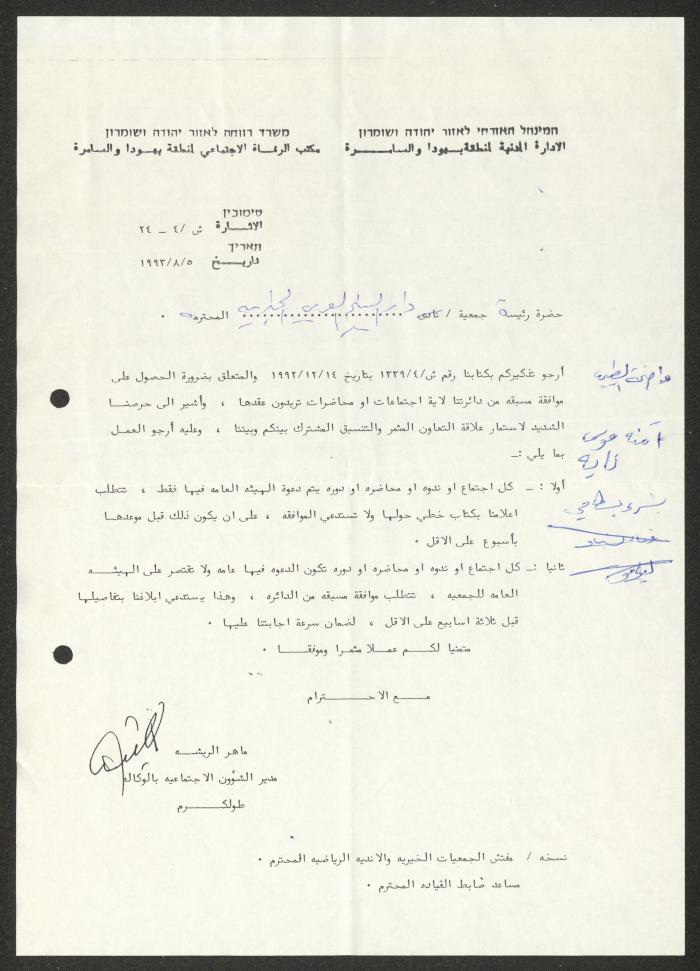 המינהל האזרחי לאזור יהודה ושומרון
الادارة المدنية لمنطقة يهودا والسامرة
משרד רווחה לאזור יהודה ושומרון
مكتب الرفاة الاجتماعي لمنطقة يهودا والسامرة
סימוכין
الاشارة ش /٤ – ٢٤
תאריך
تاريخ ١٩٩٣/٨/٥
حضرة رئيسة جمعية / نادي دار السلام العربي الخيريه المحترمه ٠
أرجو تذكيركم بكتابنا رقم ش/١٣٣٩/٤ بتاريخ ١٩٩٢/١٢/١٤ والمتعلق بضرورة الحصول على
موافقة مسبقه من دائرتنا لاية اجتماعات او محاضرات تريدون عقدها ، وأشير الى حرصنا
الشديد لاستمار علاقة التعاون المثمر والتنسيق المشترك بينكم وبيننا ، وعليه أرجو العمل
بما يلي :ـ
أولا :ـ كل اجتماع او ندوه او محاضره او دوره يتم دعوة الهيئه العامه فيها فقط ، تتطلب
اعلامنا بكتاب خطي حولها ولا تستدعي الموافقه ، على ان يكون ذلك قبل موعدها
بأسبوع على الاقل ٠
ثانيا :ـ كل اجتماع او ندوه او محاضره او دوره تكون الدعوه فيها عامه ولا تقتصر على الهيئه
العامه للجمعيه ، تتطلب موافقة مسبقه من الدائره ، وهذا يستدعي ابلاغنا بتفاصيلها
قبل ثلاثة اسابيع على الاقل ، لضمان سرعة اجابتنا عليها ٠
متمنيا لكم عملا مثمرا وموفقا ٠
مع الاحترام
ماهر الريشه
مدير الشؤون الاجتماعيه بالوكاله
طولكرم
نسخه / مفتش الجمعيات الخيريه والانديه الرياضيه المحترم ٠
مساعد ضابط القياده المحترم ٠
آمنه موسى
بشرى بسطامي